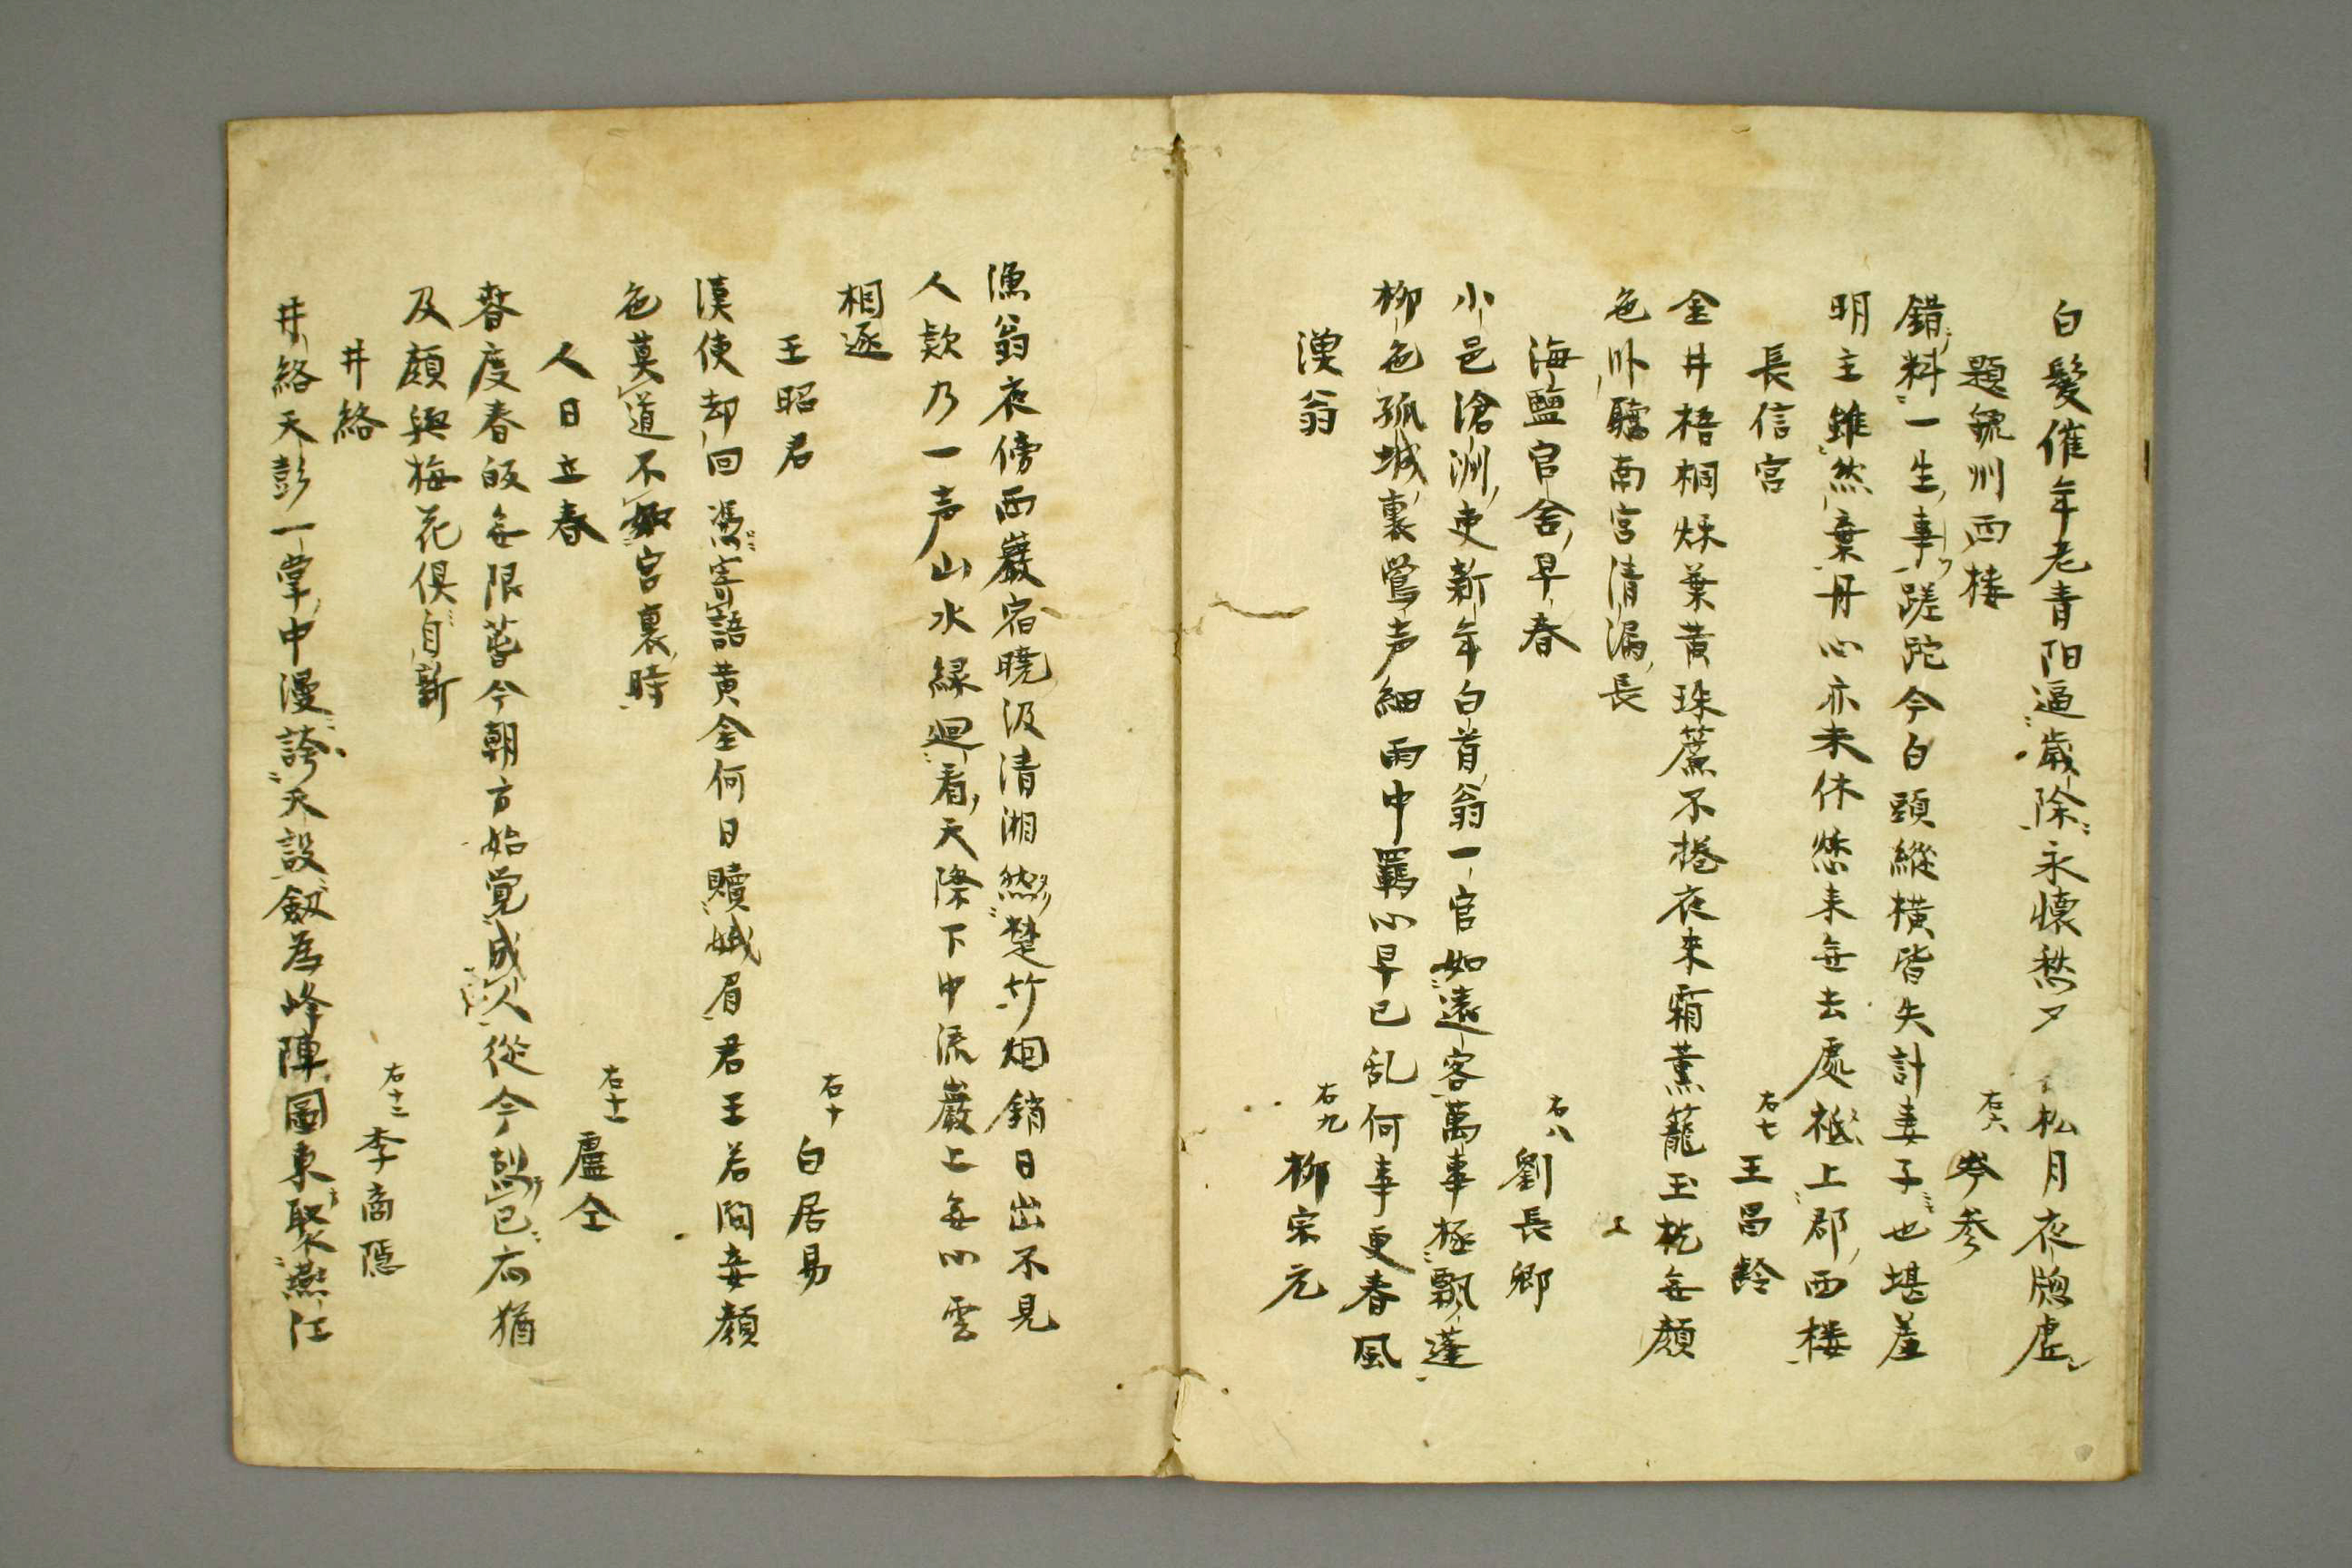 白髮催年老青阳逼歲除永懷愁夕 松月夜牕虛
題虢州西楼 右六 岑参
錯料一生事蹉跎今白頭縱横皆失計妻子也堪羞
明主雖然棄丹心亦未休愁来無去處祗上郡西楼
長信宮 右七 王昌齡
金井梧桐秌葉黄珠簾不捲夜来霜薫籠玉枕無顔
色卧聽南宮清漏長
海鹽官舍早春 右八 劉長卿
小邑滄洲吏新年白首翁一官如遠客萬事極飘蓬
柳色孤城裏鶯声細雨中羈心早已乱何事更春風
漁翁 右九 柳宗元
漁翁夜傍西巖宿曉汲清湘燃楚竹烟銷日出不見
人欵乃一声山水緑迴看天際下中流巖上無心雲
相逐
王昭君 右十 白居易
漢使却回憑寄語黄金何日贖蛾眉君王若問妾顔
色莫道不如宮裏時
人日立春 右十一 盧仝
春度春皈無限春今朝方始覚成人從今剋已應猶
及顔與梅花俱自新
井絡 右十二 李商隠
井絡天彭一掌中漫誇天設劔為峰陣圖東聚燕江